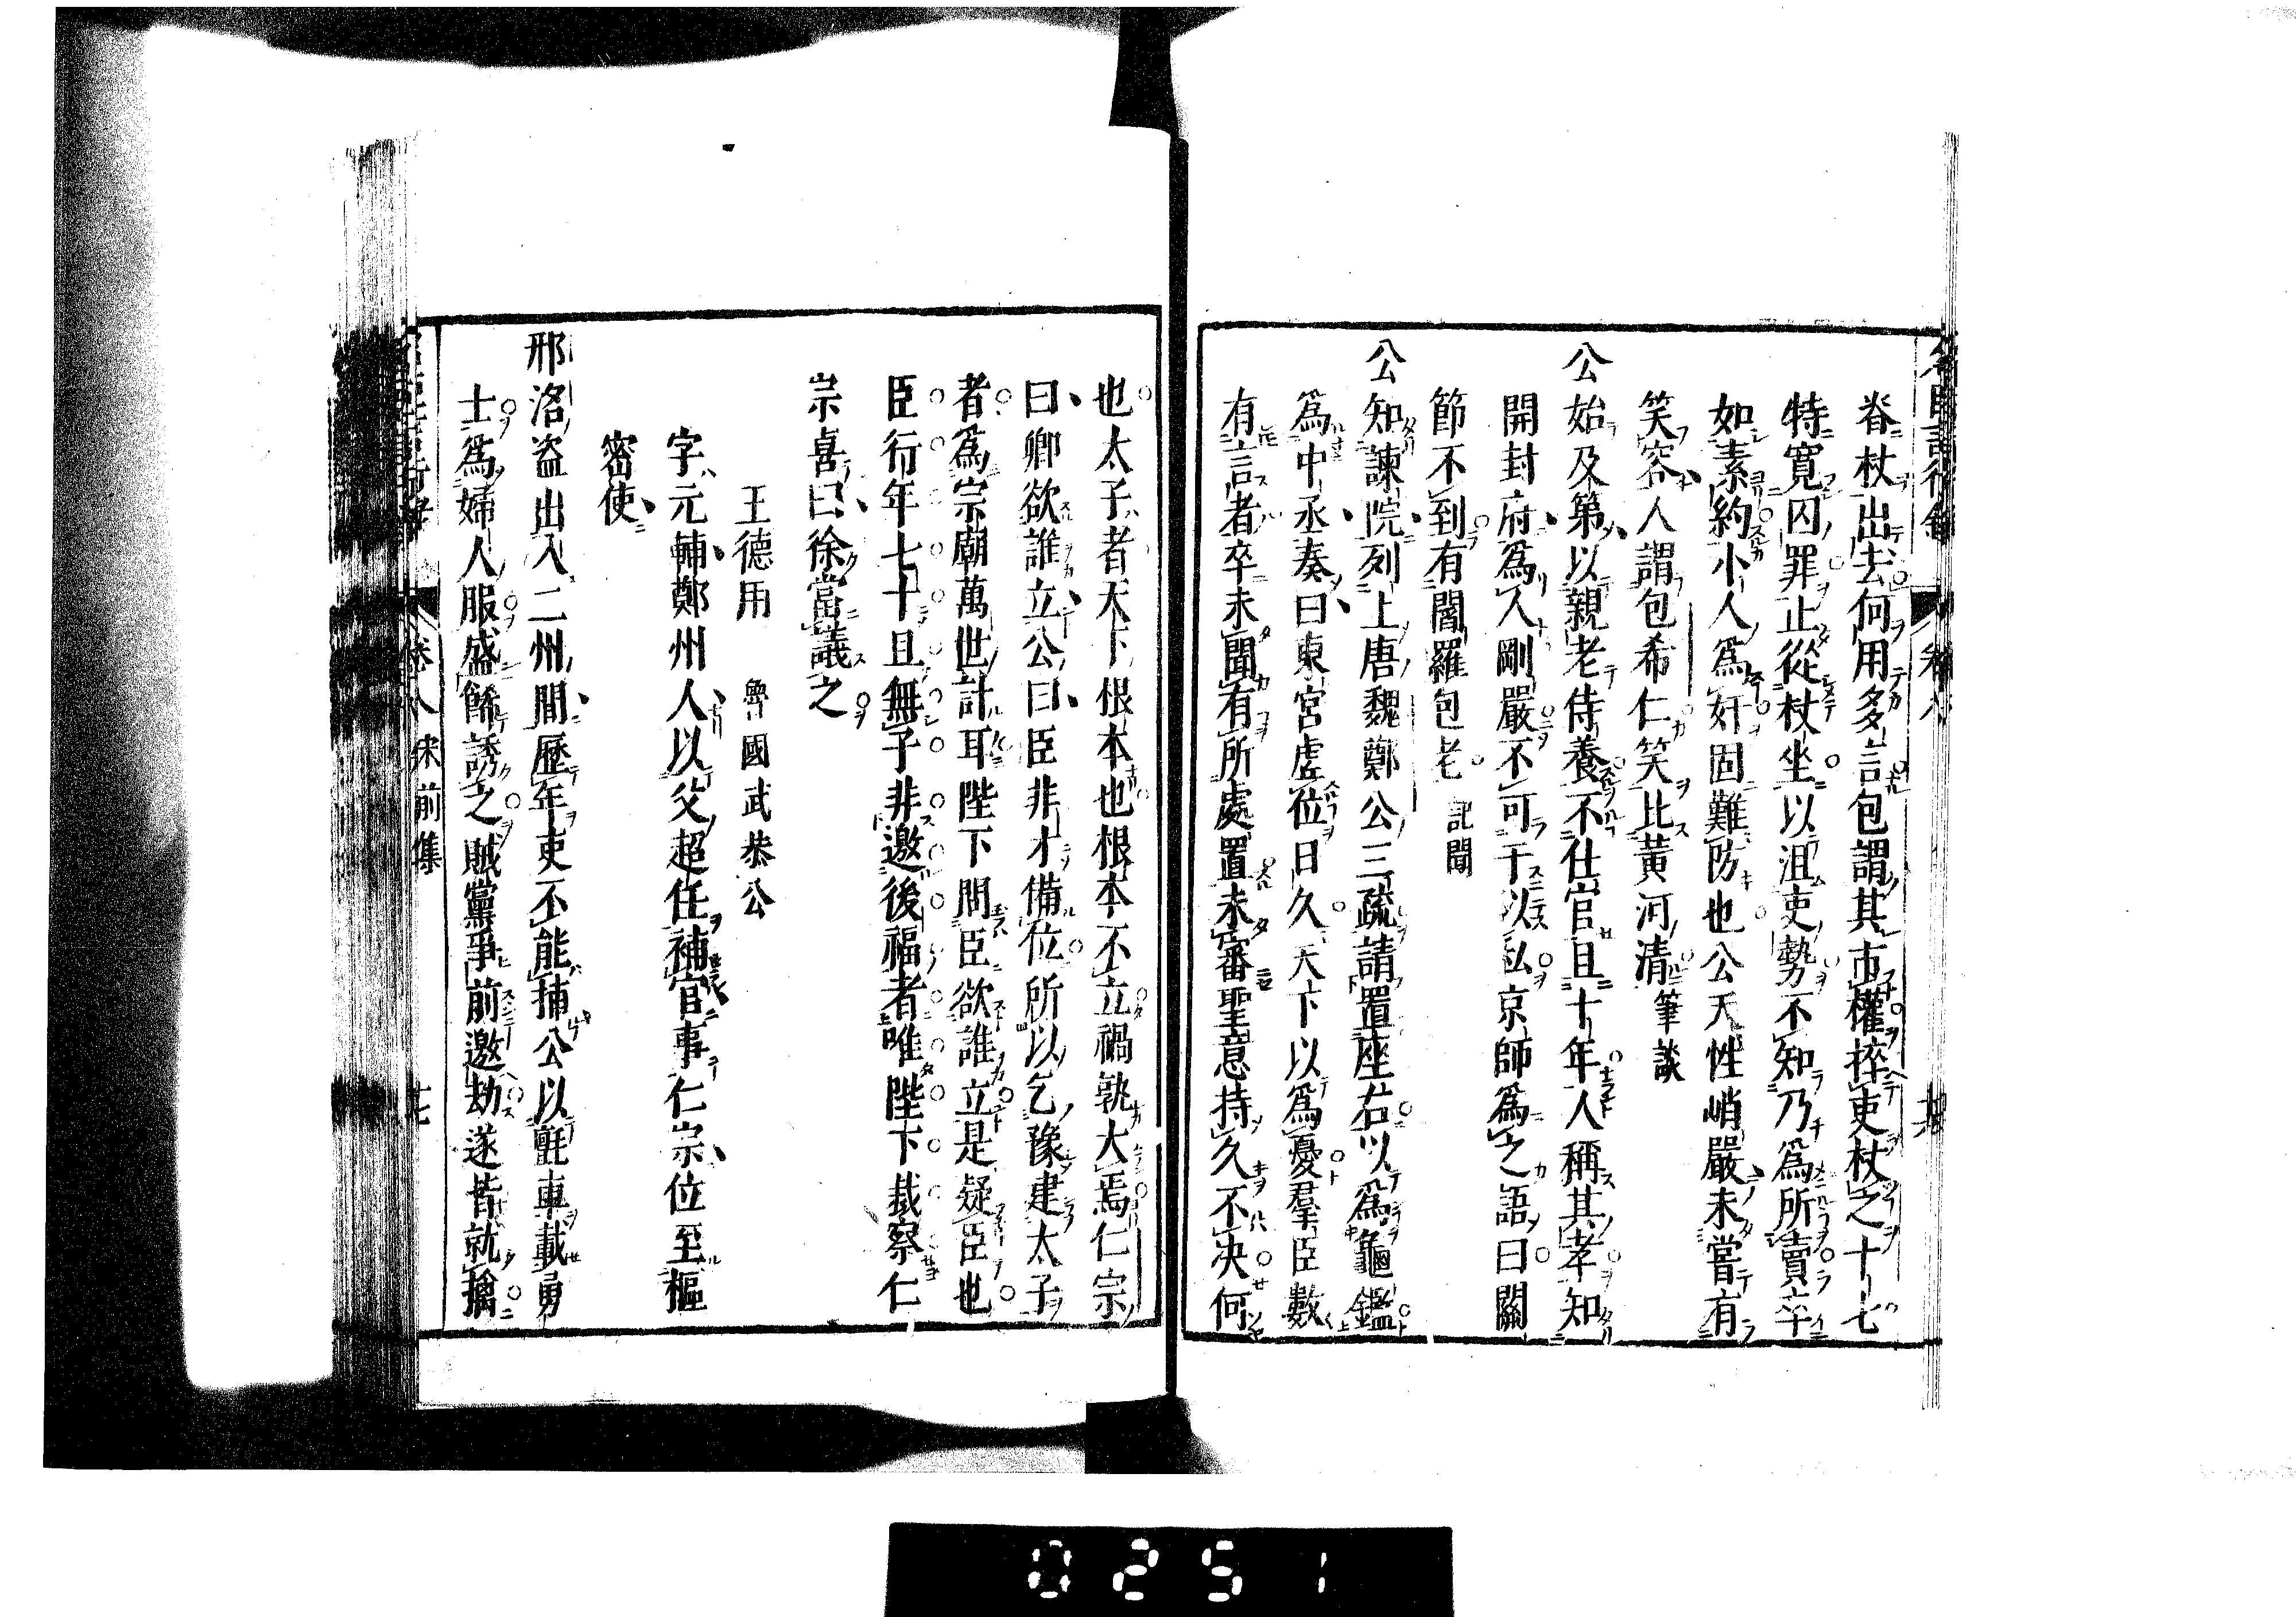 脊杖出去何用多言包謂其市權捽吏杖之十七
特寬囚罪止從杖坐以沮吏勢不知乃爲所賣卒
如素約小人爲奸固難防也公天性峭嚴未嘗有
笑容人謂包希仁笑比黃河清 筆談
公始及第以親老侍養不仕宦且十年人稱其孝知
開封府爲人剛嚴不可干以私京師爲之語曰關
節不到有閻羅包老 記聞
公知諫院列上唐魏鄭公三疏請置座右以爲龜鑑
爲中丞奏曰東宮虛位日久天下以爲憂羣臣數
有言者卒未聞有所處置未審聖意持久不决何
也太子者天下根本也根本不立禍孰大焉仁宗
曰卿欲誰立公曰臣非才備位所以乞豫建太子
者爲宗廟萬世計耳陛下問臣欲誰立是疑臣也
臣行年七十且無子非邀後福者唯陛下裁察仁
宗喜曰徐當議之
王德用 魯國武恭公
字元輔鄭州人以父超任補官事仁宗位至樞
密使
邢洛盗出入二州間歷年吏不能捕公以氈車載勇
士爲婦人服盛餙誘之賊黨爭前邀劫遂皆就擒
卷八 宋前集
十七
0251